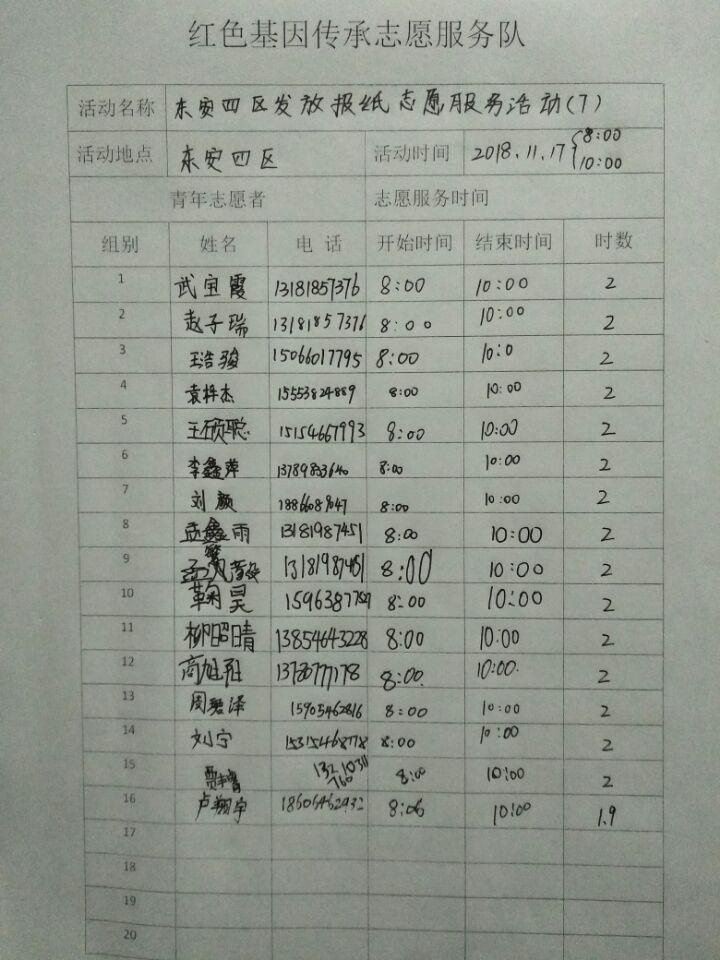 红色基因传承志愿服务队
活动名称 东安四区发放报纸志愿服务活动(7)
活动地点 东安四区 活动时间 2018.11.17 8:00 10:00
青年志愿者 志愿服务时间
组别 姓名 电 话 开始时间 结束时间 时数
1 武宝霞 13181857376 8:00 10:00 2
2 赵子瑞 13181857376 8:00 10:00 2
3 王浩骏 15066017795 8:00 10:0 2
4 袁梓杰 15553824889 8:00 10:00 2
5 王硕聪 15154667993 8:00 10:00 2
6 李鑫萍 8:00 10:00 2
7 刘颜 8:00 10:00 2
8 孟鑫雨 13181987451 8:00 10:00 2
9 8:00 10:00 2
10 鞠昊 8:00 10:00 2
11 柳昭晴 13854643228 8:00 10:00 2
12 高旭 8:00. 10:00. 2
13 周碧泽 15905462816 8:00 10:00 2
14 刘宁 15315468778 8:00 10:00 2
15 8:00 10:00 2
16 卢翔宇 18606462932 8:06 10:00 1.9
17
18
19
20